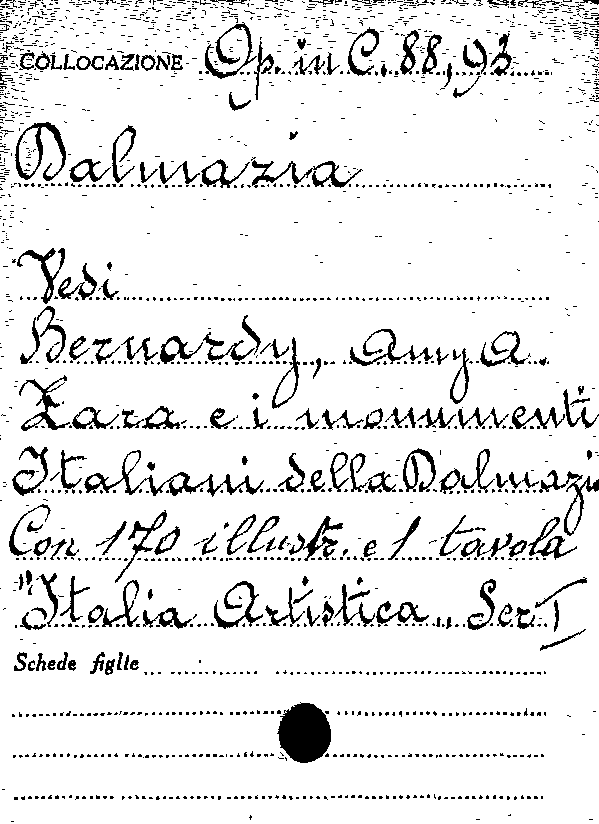 COLLOCAZIONE Op. in C. 88, 93
Dalmazia
Vedi
Bernardy, Amy A.
Zara e i monumenti
Italiani della Dalmazi
Con 170 illustr. e 1 tavola
"Italia Artistica„ Ser I
Schede figlie